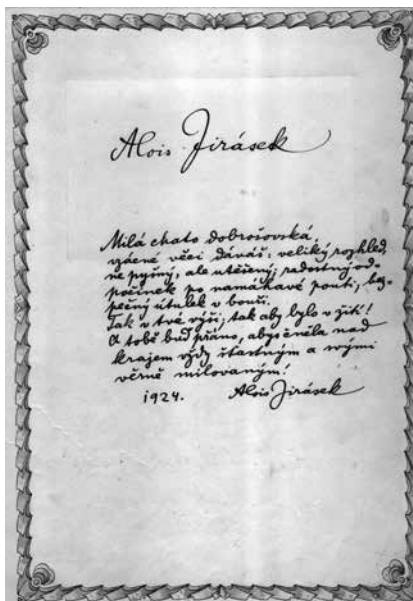 Alois Jirásek
Milá chato dobrošovská,
vzácné věci dáváš: veliký rozhled,
ne pyšný, ale utěšený; radostný od-
počinek po namáhavé pouti, bez-
pečný útulek v bouři.
Tak v tvé výši; tak aby bylo v žití!
A tobě buď přáno, abys čněla nad
krajem vždy šťastným a svými
věrně milovaným!
1924. Alois Jirásek